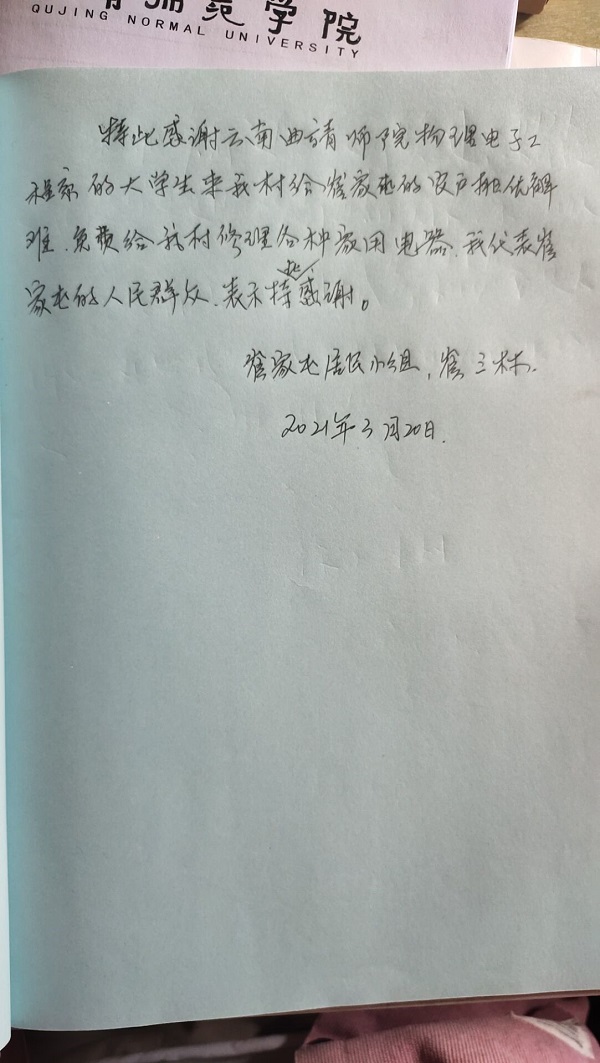 师范学院
QUJING NORMAL UNIVERSITY
特此感谢云南曲靖师院物理电子工
程系的大学生来我村给崔家屯的农户排忧解
难.免费给我村修理各种家用电器.我代表崔
家屯的人民群众.表示特此感谢。
崔家屯居民小组,崔三林.
2021年3月20日.